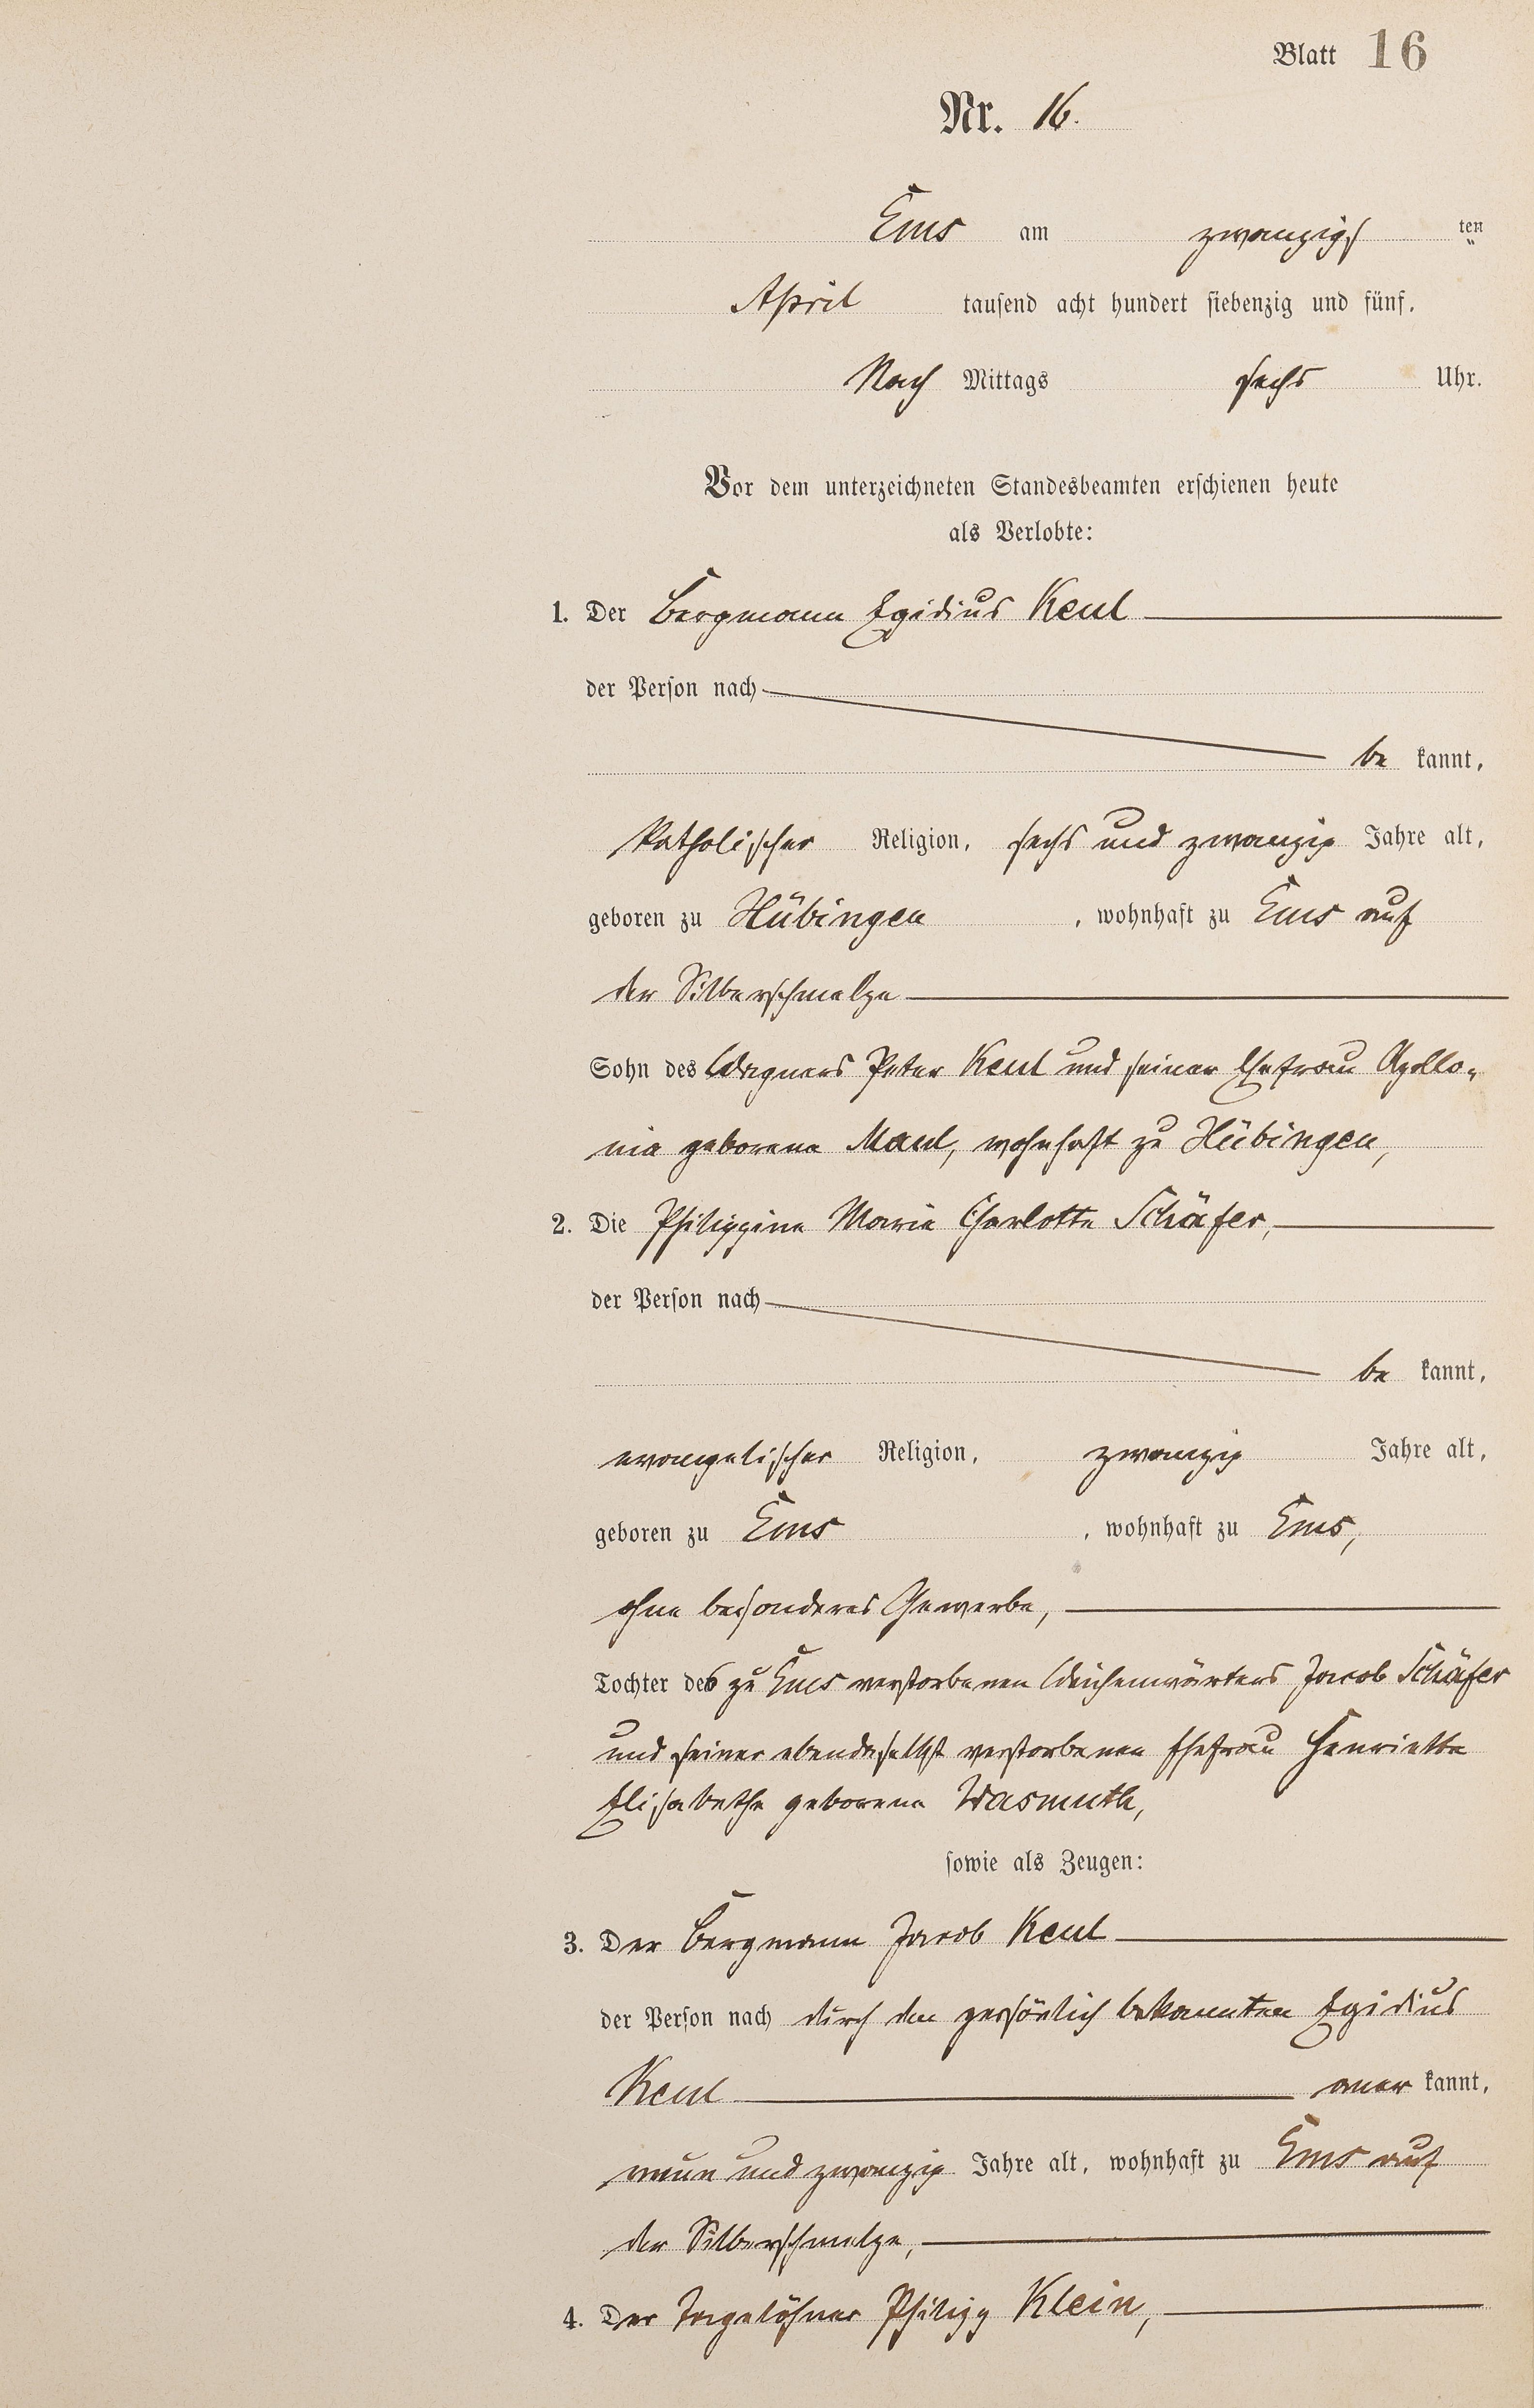 Blatt 16
Nr. 16.
Ems am zwanzigſ ten
April tauſend acht hundert ſiebenzig und fünf.
Nach Mittags ſechs Uhr.
Vor dem unterzeichneten Standesbeamten erſchienen heute
als Verlobte:
1. Der Bergmann Egidius Keul
der Perſon nach
be kannt,
katholiſcher Religion, ſechs und zwanzig Jahre alt,
geboren zu Hübingen, wohnhaft zu Ems auf
der Silberſchmelze
Sohn des Wagners Peter Keul und ſeiner Ehefrau Apollo„
nia geborene Maul, wohnhaft zu Hübingen,
2. Die Philippine Maria Charlotte Schäfer,
der Perſon nach
be kannt,
evangeliſcher Religion, zwanzig Jahre alt,
geboren zu Ems, wohnhaft zu Ems,
ohne beſonderes Gewerbe,
Tochter des zu Ems verſtorbenen Weichenwärters Jacob Schäfer
und ſeiner ebendaſelbſt verſtorbenen Ehefrau Henriette
Eliſabethe geborene Wasmuth,
ſowie als Zeugen:
3. Der Bergmann Jacob Keul
der Perſon nach durch den perſönlich bekannten Egidius
Keul aner kannt,
neun und zwanzig Jahre alt, wohnhaft zu Ems auf
der Silberſchmelze,
4. Der Tagelöhner Philipp Klein,